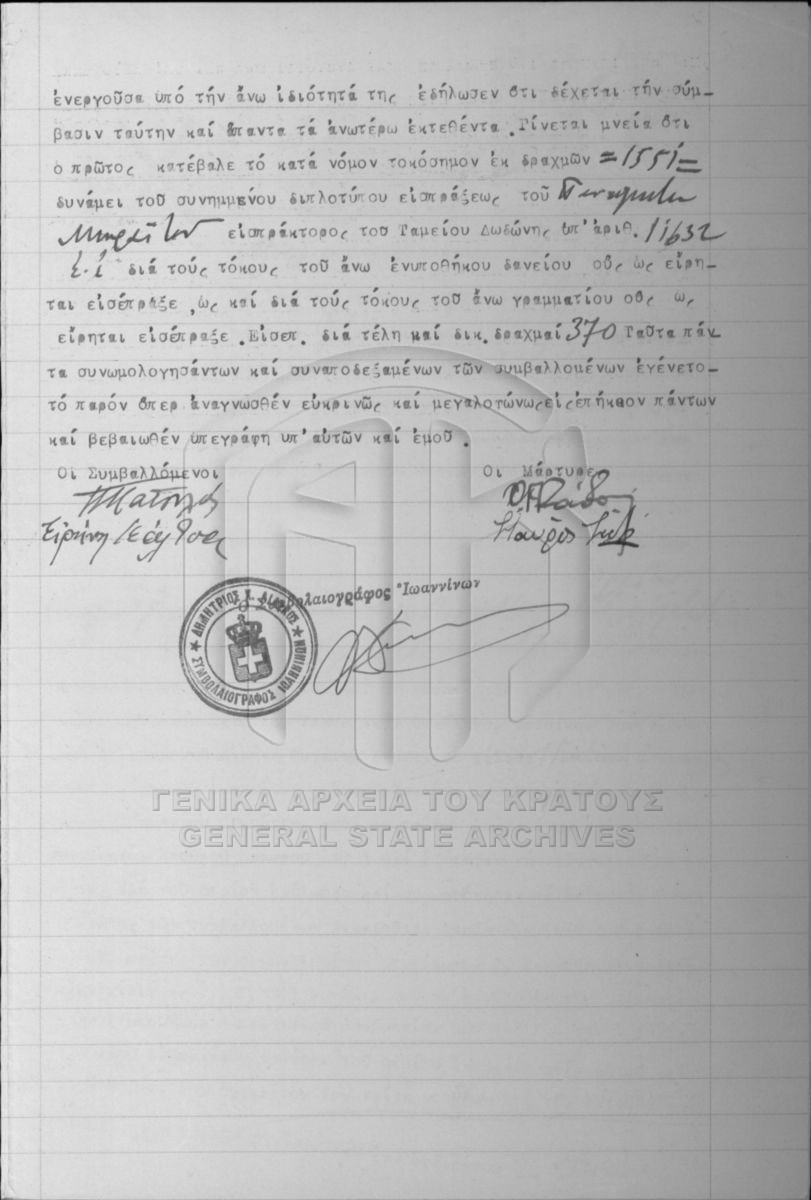 ἐνεργοῦσα ὑπό τήν ἄνω ἰδιότητά της ἐδήλωσεν ὅτι δέχεται τήν σύμ-
βασιν ταύτην καί ἅπαντα τά ἀνωτέρω ἐκτεθέντα. Γίνεται μνεία ὅτι
ὁ πρῶτος κατέβαλε τό κατά νόμον τοκόσημον ἐκ δραχμῶν =1551=
δυνάμει τοῦ συνημμένου διπλοτύπου εἰσπράξεως τοῦ
εἰσπράκτορος τοῦ Ταμείου Δωδώνης ὑπ' ἀριθ. 11632
διά τούς τόκους τοῦ ἄνω ἐνυποθήκου δανείου οὕς ὡς εἴρη-
ται εἰσέπραξε ,ὡς καί διά τούς τόκους τοῦ ἄνω γραμματίου οὕς ὡς
εἴρηται εἰσέπραξε . Εἰσεπ. διά τέλη καί δικ. δραχμαί 370 Ταῦτα πάν
τα συνωμολογησάντων καί συναποδεξαμένων τῶν συμβαλλομένων ἐγένετο-
τό παρόν ὅπερ ἀναγνωσθέν εὐκρινῶς καί μεγαλοτώνωςείςἐπήκοον πάντων
καί βεβαιωθέν ὑπεγράφη ὑπ'αὐτῶν καί ἐμοῦ .
Οἱ Συμβαλλόμενοι Οἱ Μάρτυρες
Εἰρήνη
Ὁ Συμβολαιογράφος Ἰωαννίνων
ΔΗΜΗΤΡΙΟΣ Χ.
ΣΥΜΒΟΛΑΙΟΓΡΑΦΟΣ ΙΩΑΝΝΙΝΩΝ
ΓΕΝΙΚΑ ΑΡΧΕΙΑ ΤΟΥ ΚΡΑΤΟΥΣ
GENERAL STATE ARCHIVES